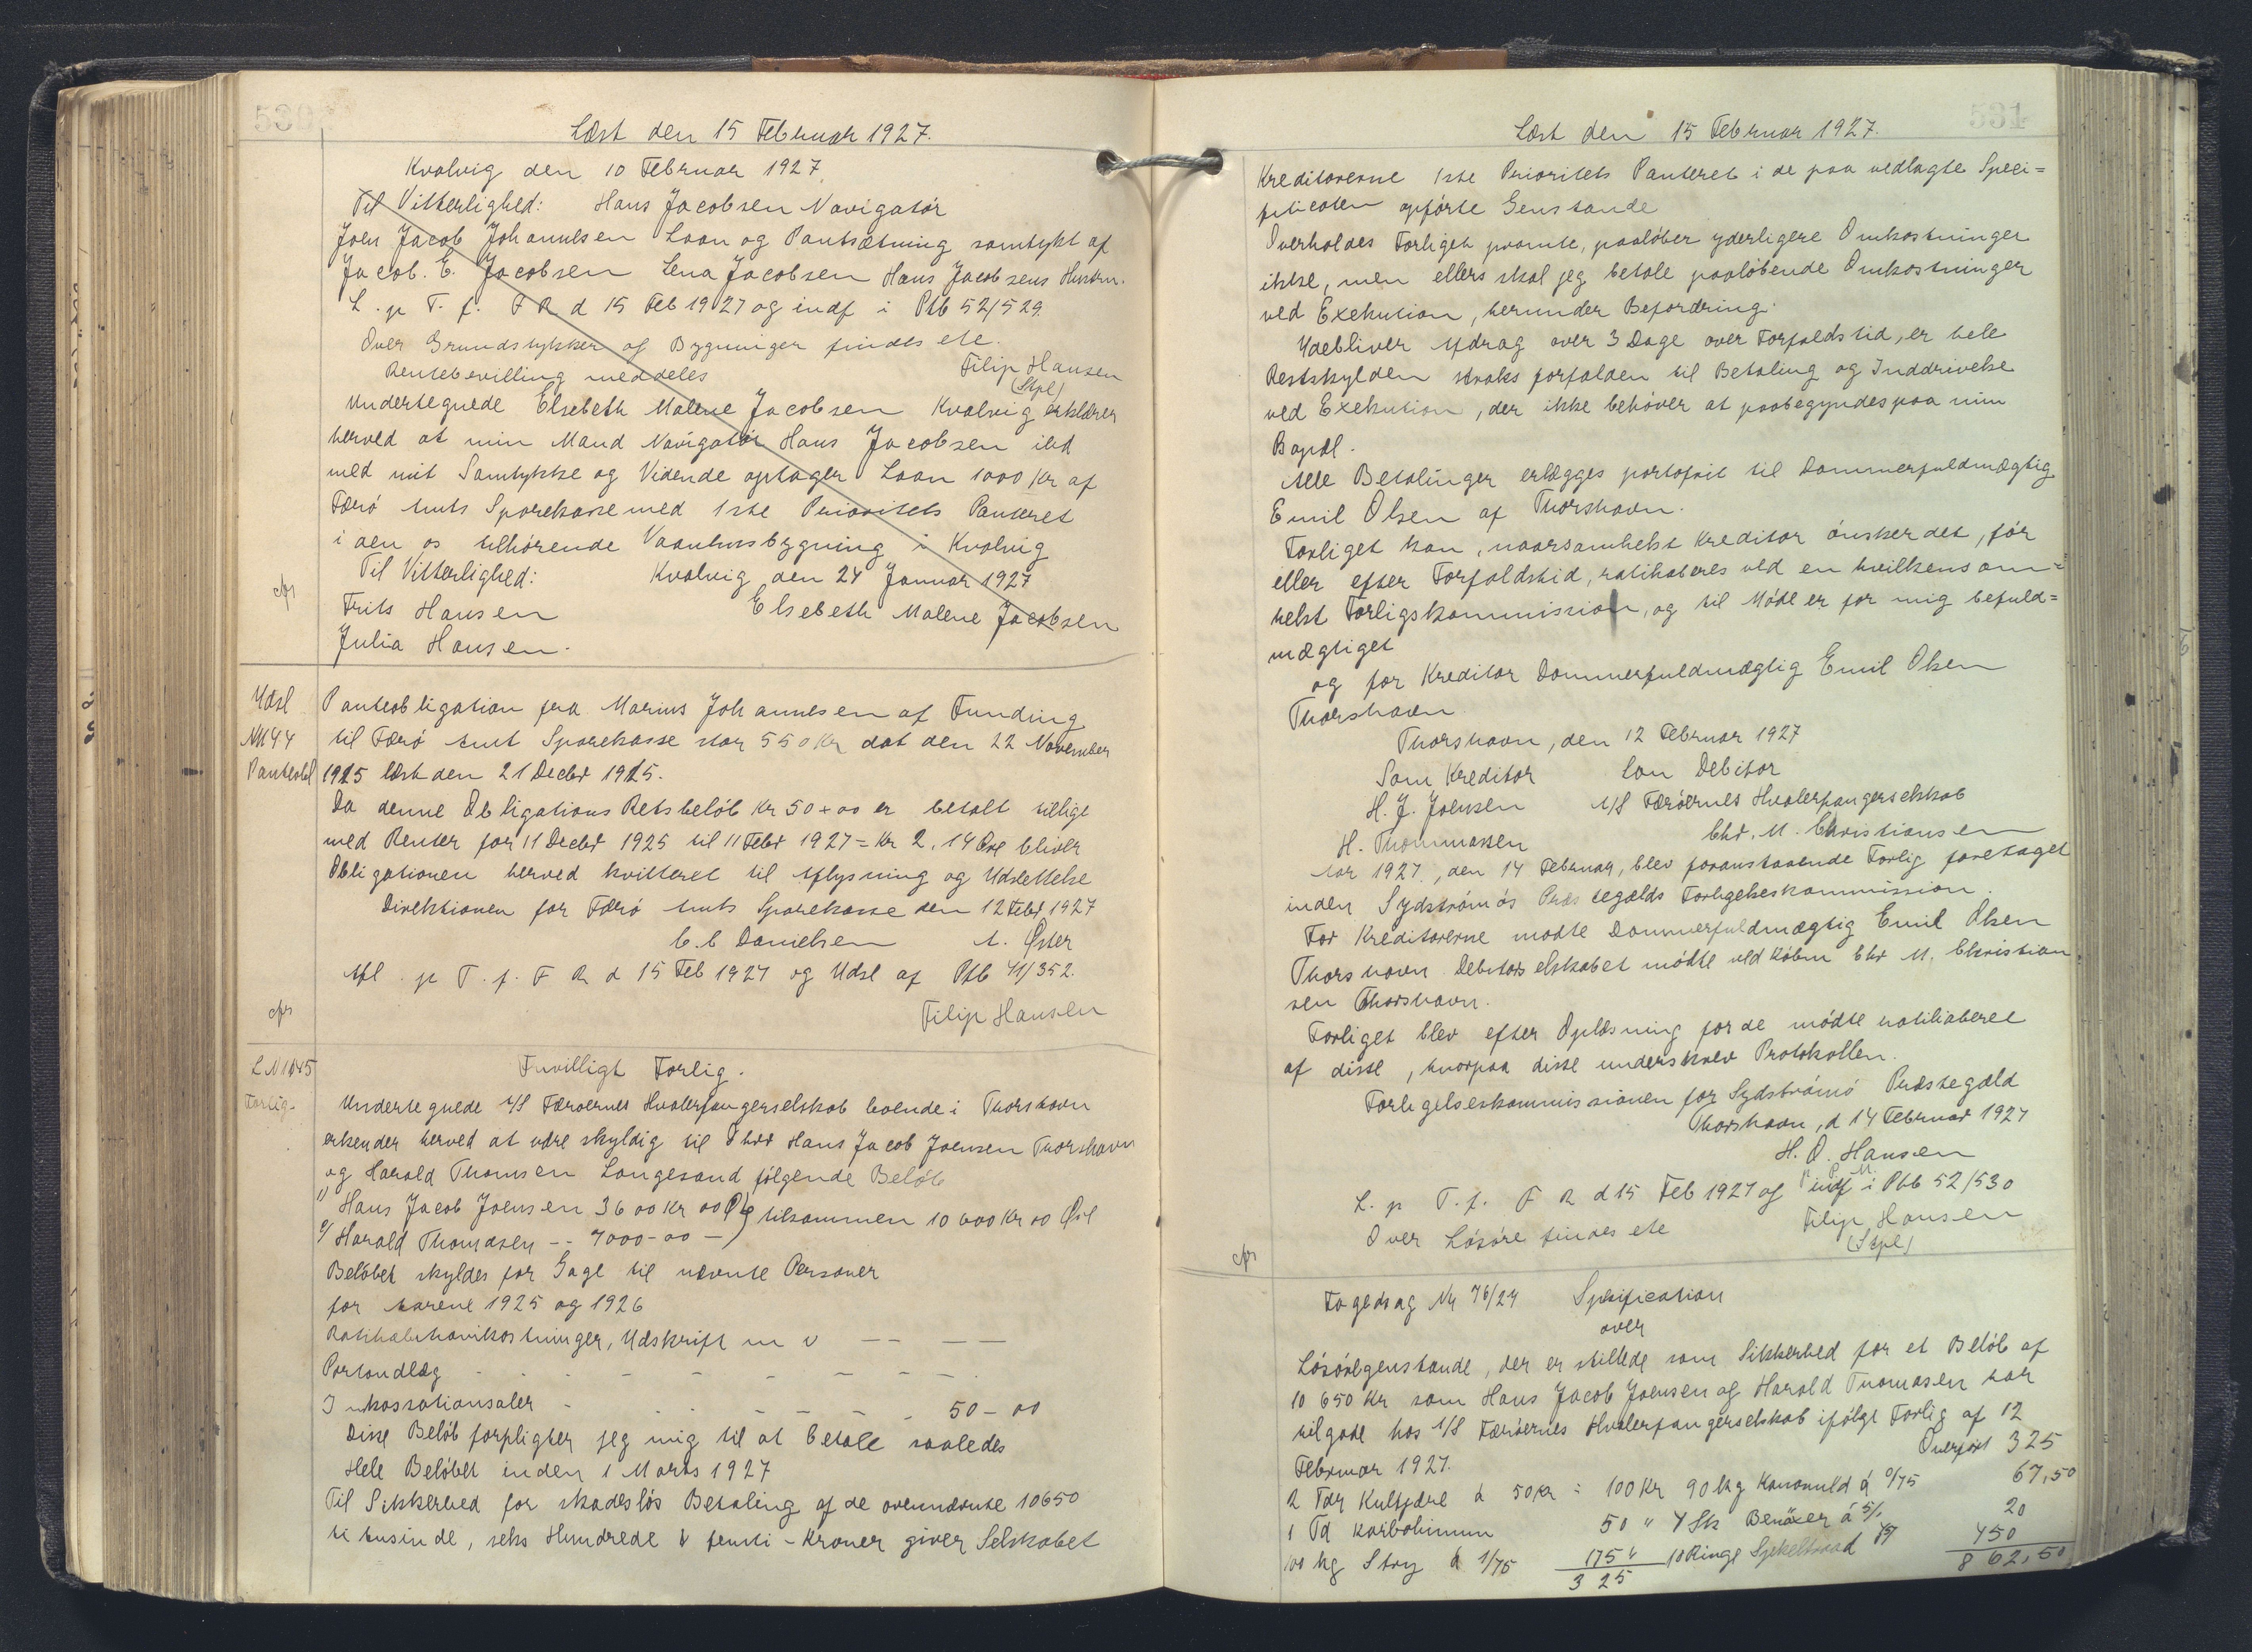 530
Læst den 15 Februar 1927.
Kvalvig den 10 Februar 1927
Til Vitterlighed: Hans Jacobsen Navigatør
Joen Jacob Johannesen Laan og Pantsætning samtykt af
Jacob. E. Jacobsen Lena Jacobsen Hans Jacobsens Hustru.
L. p T. f. F R d 15 Feb 1927 og indf i Ptb 52/529.
Over Grundstykker og Bygninger findes ete.
Rentebevilling meddeles Filip Hansen
(Stpl)
Undertegnede Elsebeth Malene Jacobsen Kvalvig erklærer
herved at min Mand Navigatør Hans Jacobsen ibd
med mit Samtykke og Vidende optager Laan 1000 Kr af
Færø Amts Sparekasse med 1ste Prioritets Panteret
i den os tilhørende Vaanhusbygning i Kvalvig
Til Vitterlighed: Kvalvig den 24 Januar 1927
Frits Hansen Elsebeth Malene Jacobsen
Julia Hansen.
Udsl Panteobligation fra Marius Johannesen af Funding
N 1144 til Færø Amt Sparekasse stor 550 Kr dat den 22 November
Panteobl 1915 læst den 21 Decbr 1915.
Da denne Obligations Retsbeløb Kr 50+00 er betalt tillige
med Renter for 11 Decbr 1925 til 11 Febr 1927 = Kr 2.14 Øre bliver
Obligationen herved kvitteret til Aflysning og Udslettelse
Direktionen for Færø Amts Sparekasse den 12 Febr 1927
C. C Danielsen A. Øster
Afl. p T. f. F R d 15 Feb 1927 og Udsl af Ptb 41/352.
Filip Hansen
L N 1145 Frivilligt Forlig.
Forlig. Undertegnede A/S Færøernes Hvalerfangerselskab boende i Thorshavn
erkender herved at være skyldig til Dhrr Hans Jacob Joensen Thorshavn
og Harald Thomsen Langesand følgende Beløb
1) Hans Jacob Joensen 3600 Kr 00 Øre tilsammen 10600 Kr 00 Øre
2/ Harald Thomasen -- 7000-00 -
Beløbet skyldes for Gage til nævnte Personer
for Aarene 1925 og 1926
Ratihabitionikostninger, Udskrift m v -- --
Portoudlæg
Inkassationsaler 50-00
Disse Beløb forpligter jeg mig til at betale saaledes
Hele Beløbet inden 1 Marts 1927
Til Sikkerhed for skadesløs Betaling af de ovennævnte 10650
ti tusinde, seks Hundrede & femti - Kroner giver Selskabet
531
Læst den 15 Februar 1927.
Kreditorerne 1ste Prioritets Panteret i de paa vedlagte Speci=
fikation opførte Genstande
Overholdes Forliget promte, paaløber yderligere Omkostninger
ikke, men ellers skal jeg betale paaløbende Omkostninger
ved Exekution, herunder Befordring.
Udebliver Afdrag over 3 Dage over Forfaldstid, er hele
Restskylden straks forfalden til Betaling og Inddrivelse
ved Exekution, der ikke behøver at paabegyndes paa min
Bopæl.
Alle Betalinger erlægges portofrit til Dommerfuldmægtig
Emil Olsen af Thorshavn.
Forliget kan, naarsomhelst Kreditor ønsker det, før
eller efter Forfaldstid, ratihaberes ved en hvilkensom=
helst Forligskommission, og til Møde er for mig befuld=
mægtiget
og for Kreditor Dommerfuldmægtig Emil Olsen
Thorshavn
Thorshavn, den 12 Februar 1927
Som Kreditor Som Debitor
H. J. Joensen A/S Færøernes Hvalerfangerselskab
H. Thommasen Chr. M. Christiansen
Aar 1927, den 14 Februar, blev foranstaaende Forlig foretaget
inden Sydstrømøs Præstegælds Forligelseskommission.
For Kreditorerne mødte Dommerfuldmægtig Emil Olsen
Thorshavn. Debitorselskabet mødte ved Købm Chr M. Christian
sen Thorshavn.
Forliget blev efter Oplæsning for de mødte ratihaberet
af disse, hvorpaa disse underskrev Protokollen.
Forligelseskommissionen for Sydstrømø Præstegæld
Thorshavn, d 14 Februar 1927
H. O. Hansen
P. M.
L. p T. f. F R d 15 Feb 1927 og indf i Ptb 52/530
Over Løsøre findes ete Filip Hansen
(Stpl)
Fogedsag Nr 76/27 Spesification
over
Løsøregenstande, der er stillede som Sikkerhed for et Beløb af
10650 Kr som Hans Jacob Joensen og Harald Thomasen har
tilgode hos A/S Færøernes Hvalerfangerselskab ifølge Forlig af 12
Februar 1927. Overført 325
2 Tdr Kultjære á 50 Kr = 100 Kr 90 kg á 0/75 67,50
1 Td Karbolinum 50 " 4 Stk Benäxer á 5/. 20
100 kg Stry á 1/75 175 " 10 Ringe 450
325 862,50